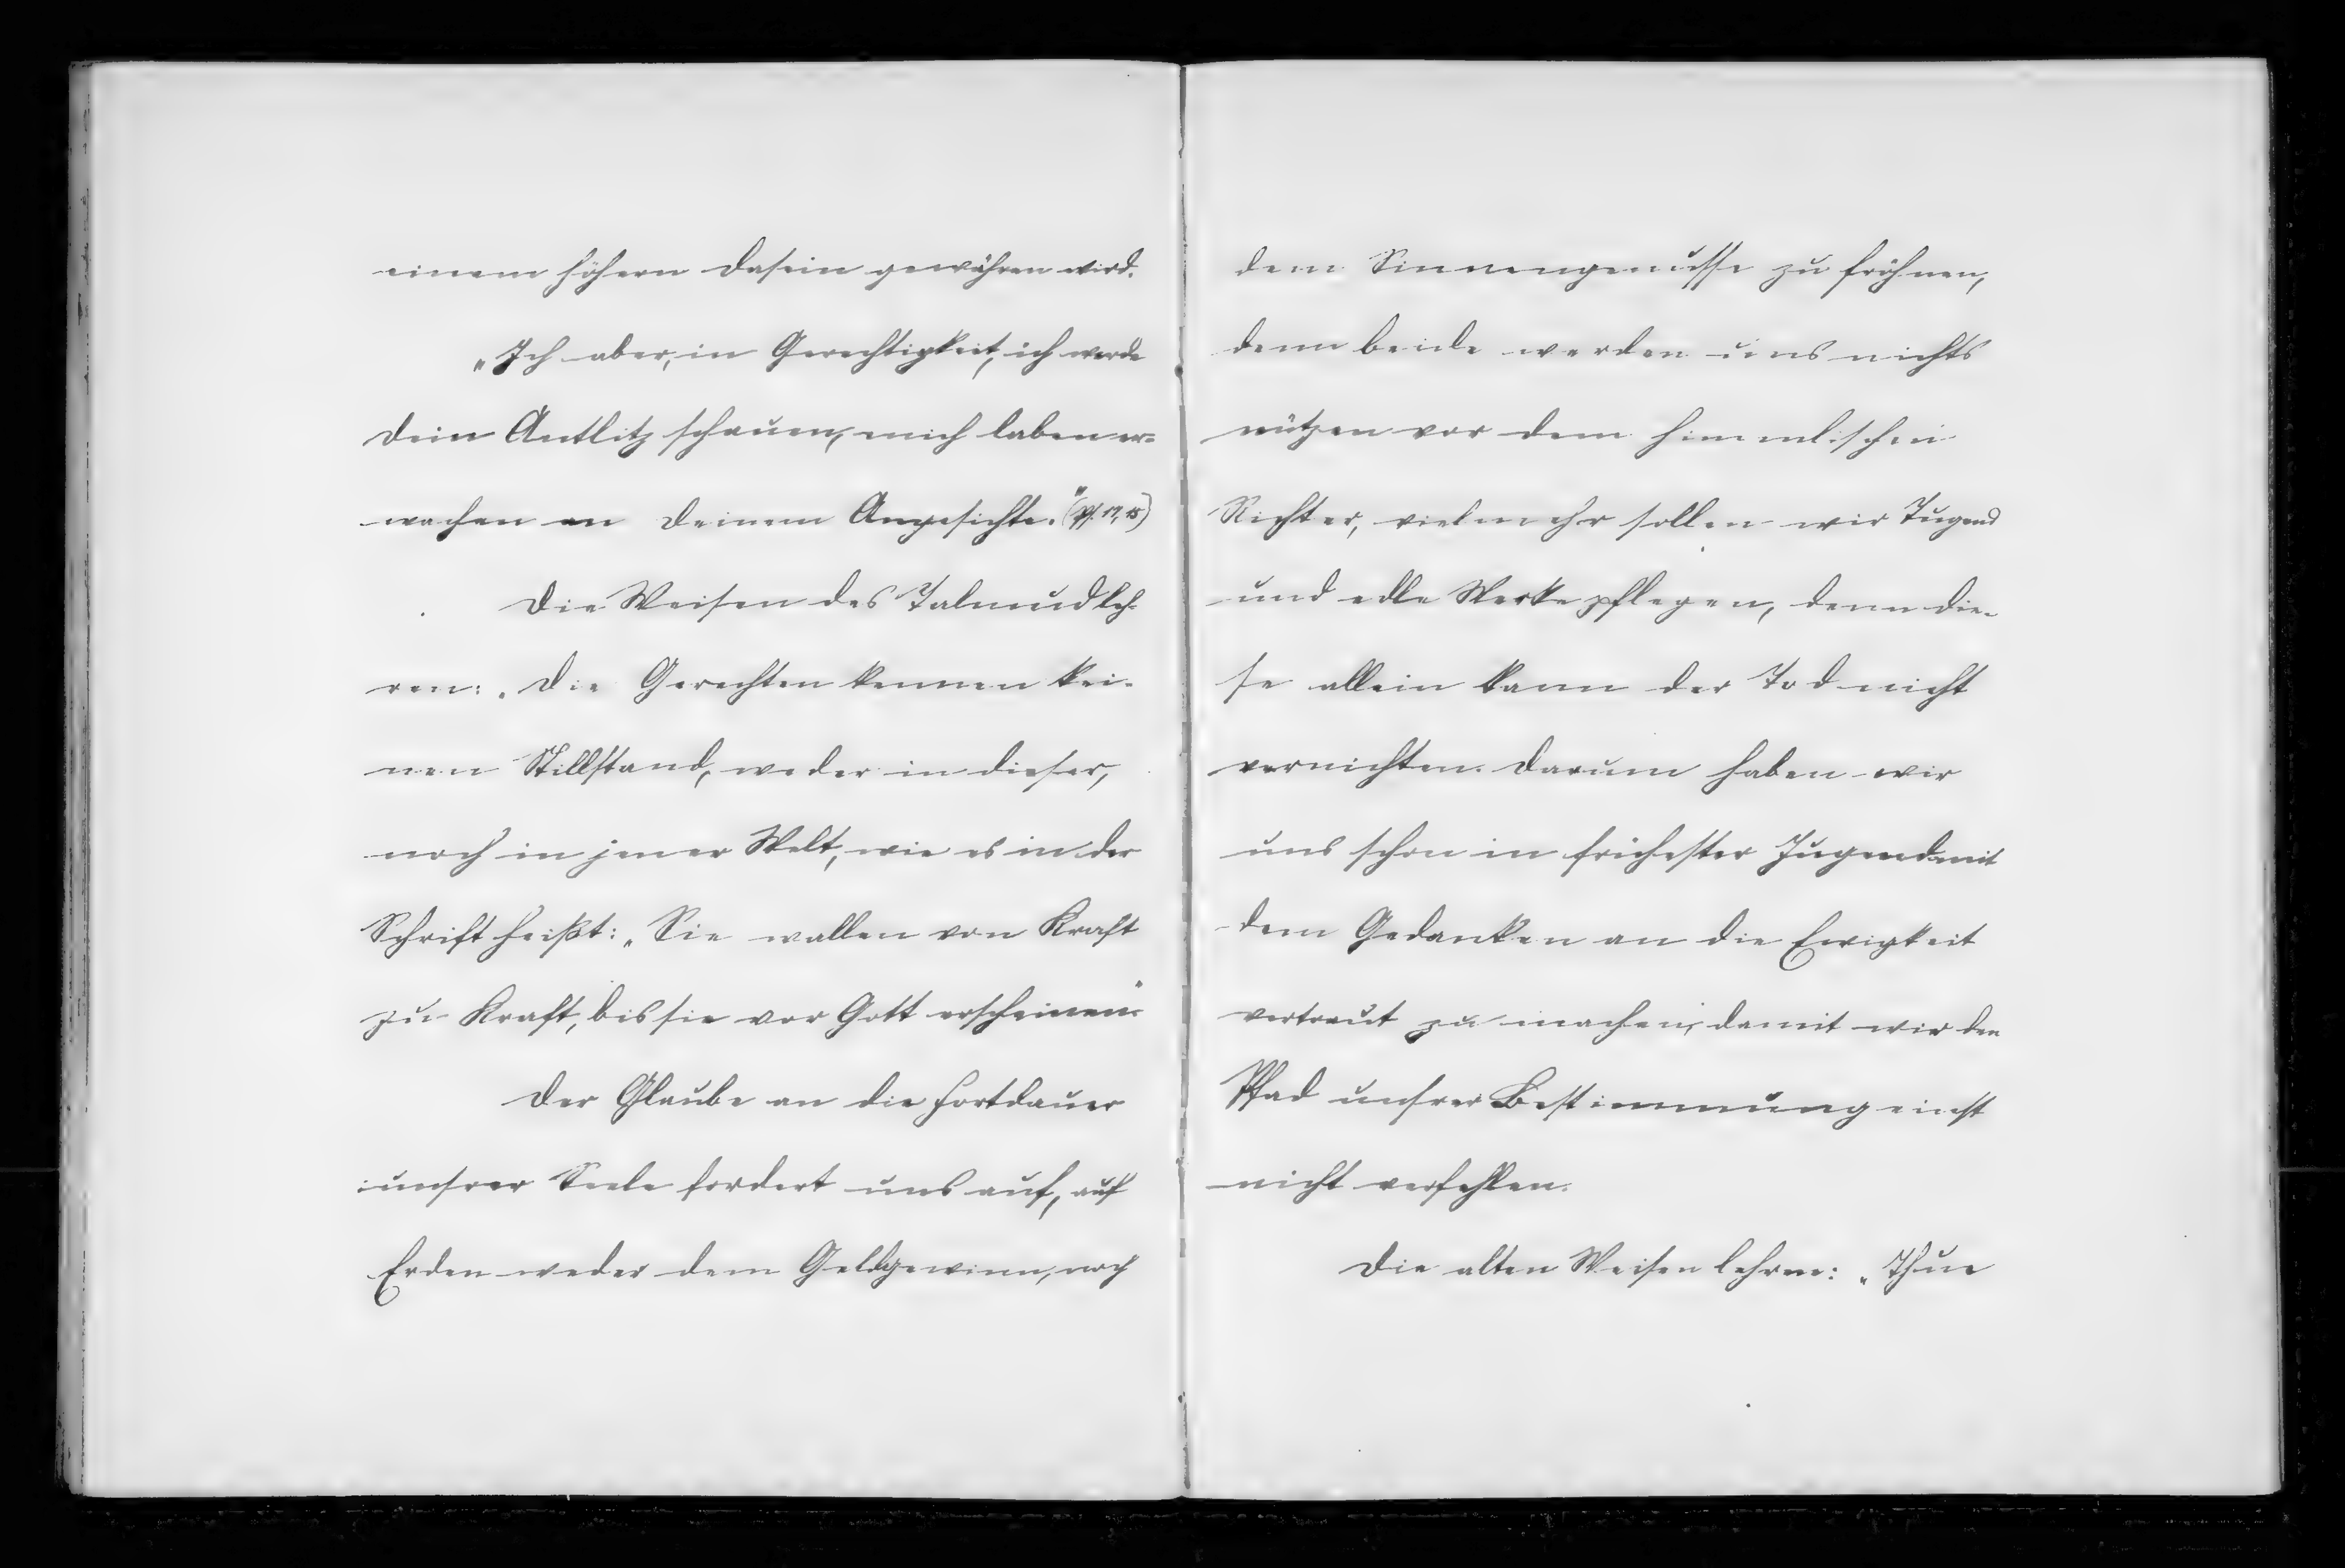 einem höhern Dasein gewähren wird.
„Ich aber, in Gerechtigkeit, ich werde
Dein Antlitz schauen, mich laben er=
wachen an Deinem Angesichte." (Ps. 17, 15)
Die Weisen des Talmud leh-
ren: „Die Gerechten kennen kei-
nen Stillstand, weder in dieser,
noch in jener Welt, wie es in der
Schrift heißt: „Sie wallen von Kraft
zu Kraft, bis sie vor Gott erscheinen."
Der Glaube an die Fortdauer
unsrer Seele fordert uns auf, auf
Erden weder dem Geldgewinn, noch
dem Sinnengenusse zu fröhnen,
denn beide werden uns nichts
nützen vor dem himmlischen
Richter, vielmehr sollen wir Tugend
und edle Werke pflegen, denn die-
se allein kann der Tod nicht
vernichten. Darum haben wir
uns schon in frühester Jugend mit
dem Gedanken an die Ewigkeit
vertraut zu machen, damit wir den
Pfad unsrer Bestimmung einst
nicht verfehlen.
Die alten Weisen lehren: „Thue